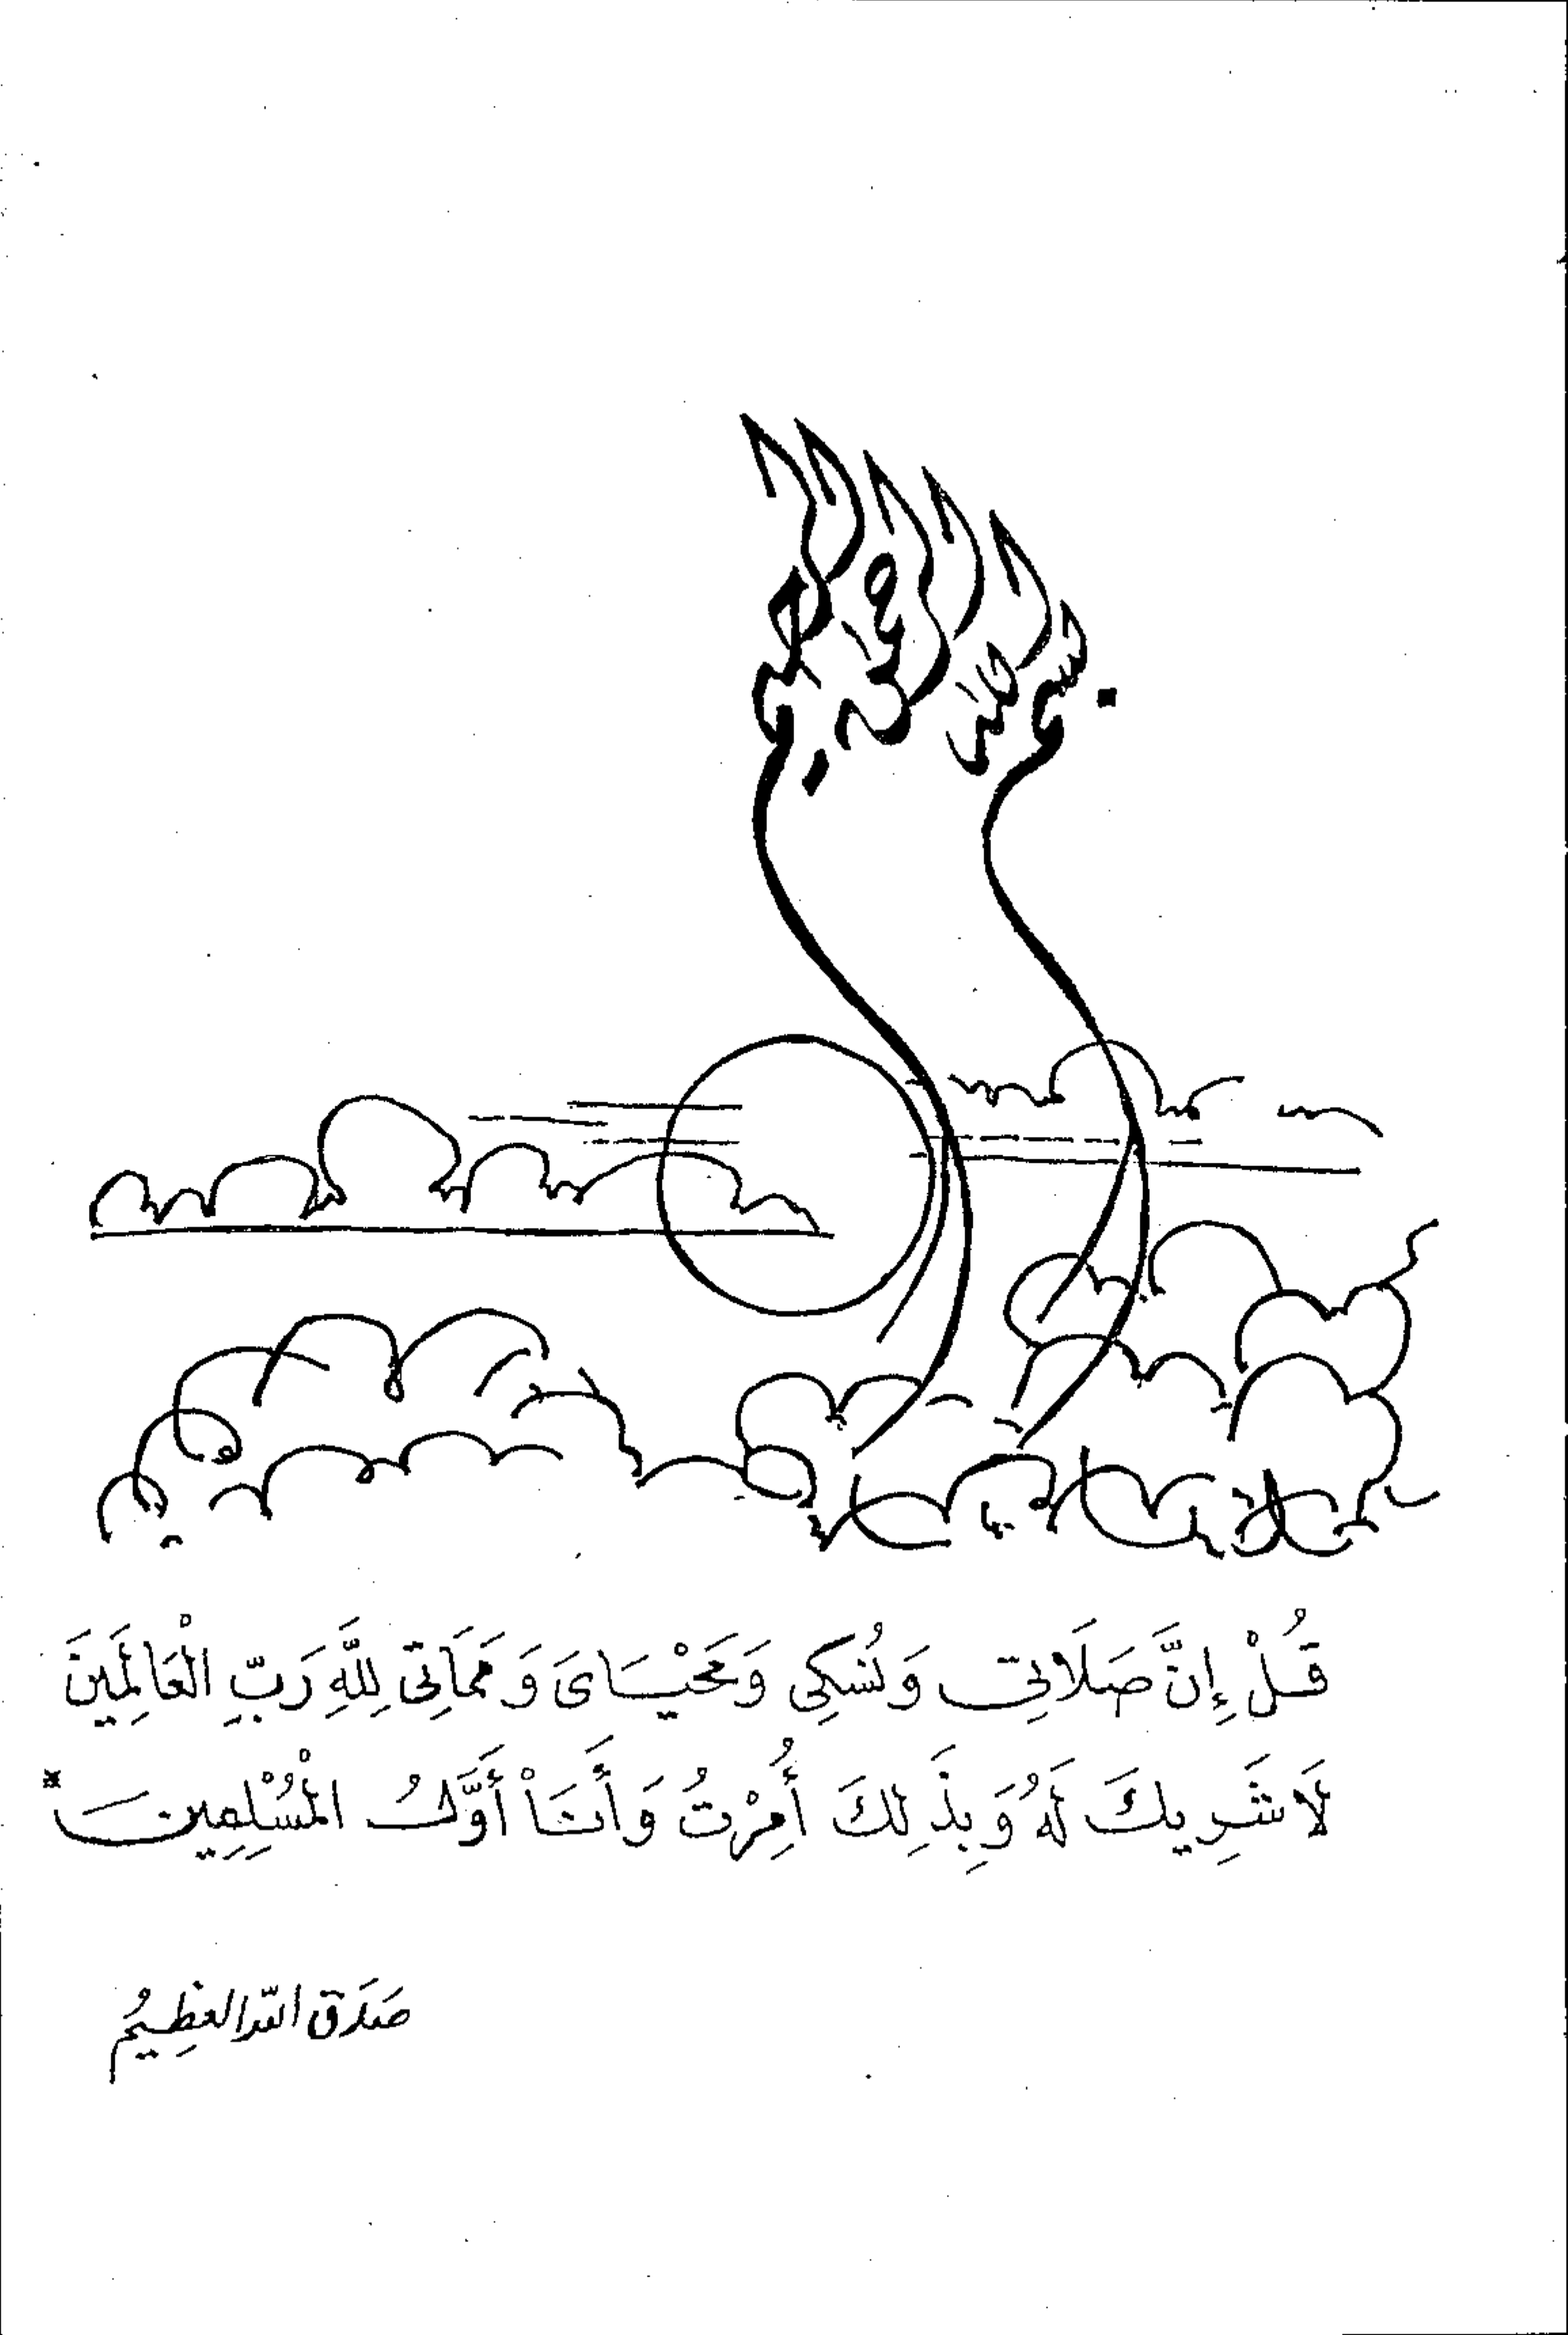 قُلْ إِنَّ صَلَاتِى وَنُسُكِى وَمَحْيَاىَ وَمَمَاتِى لِلَّهِ رَبِّ الْعَالَمِينَ
لَا شَرِيكَ لَهُ وَبِذَلِكَ أُمِرْتُ وَأَنَاْ أَوَّلُ الْمُسْلِمِينَ *
صَدَقَ اللّه العَظِيمُ